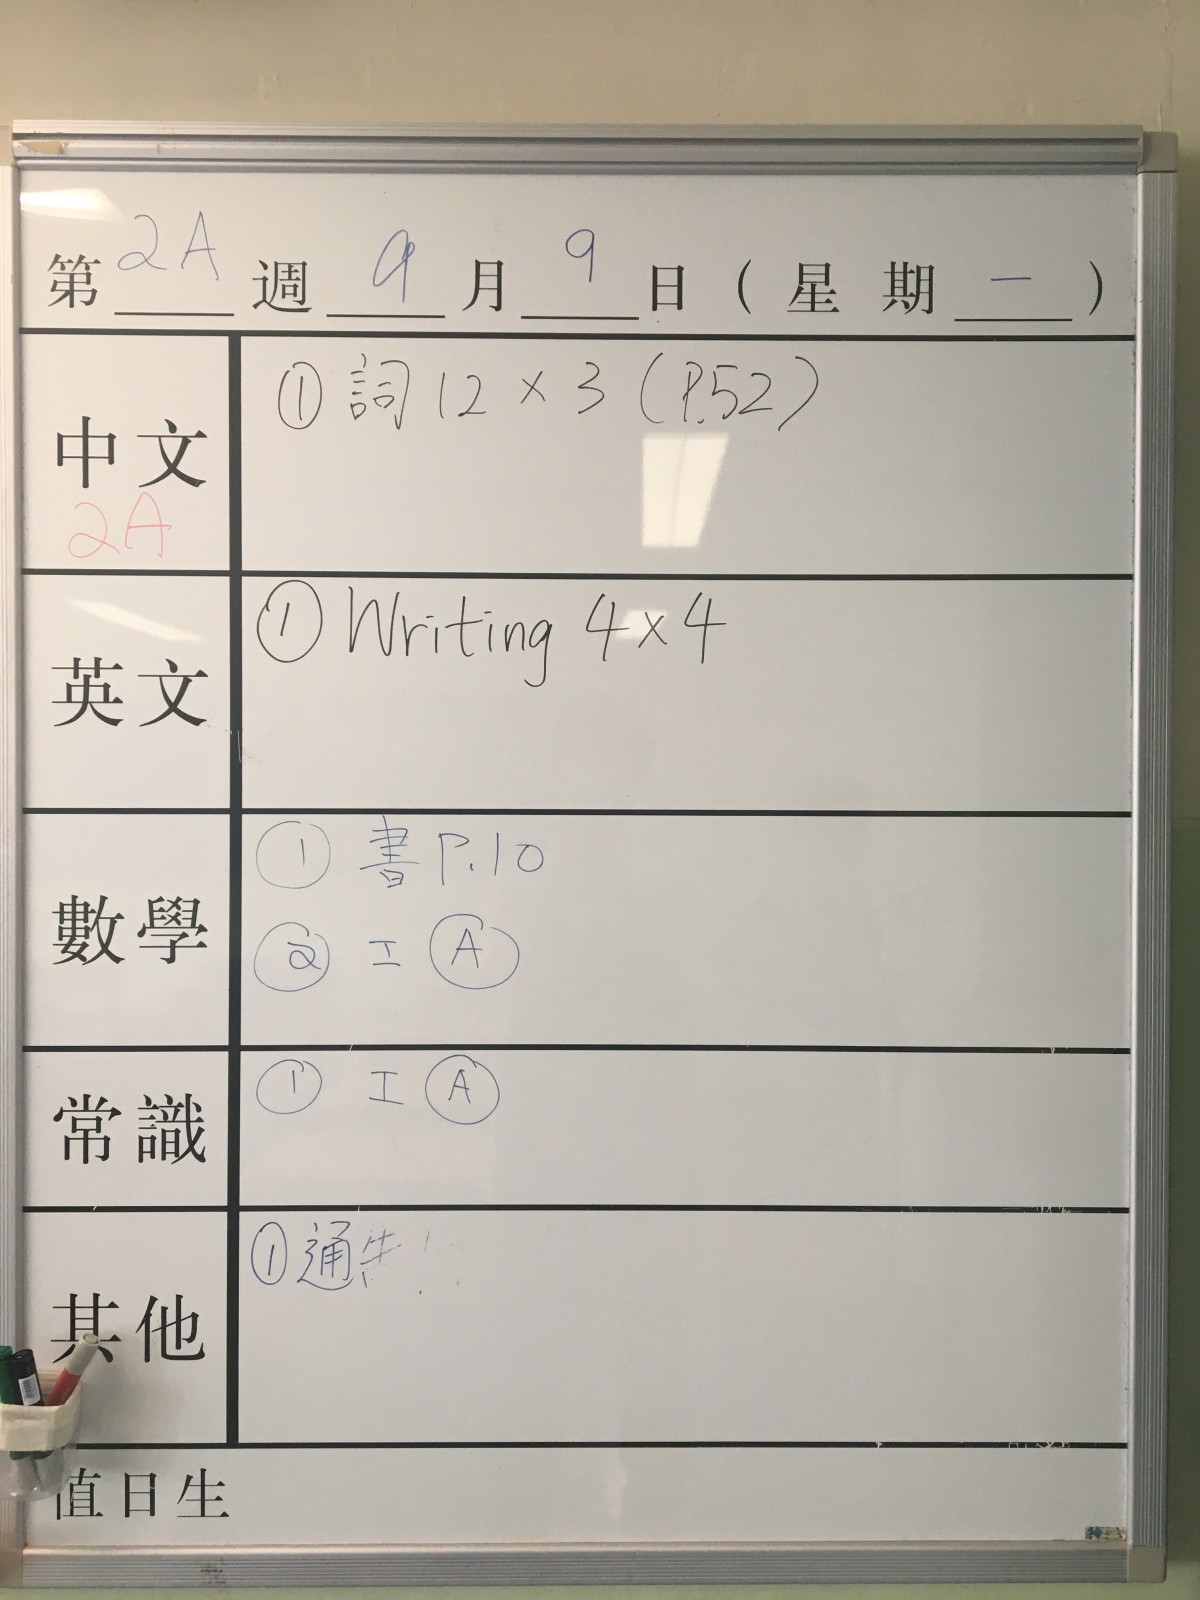 第 2A 週 9 月 9 日 ( 星 期 一 )
中文
2A
① 詞 12 × 3 (P.52)
英文
① Writing 4×4
數學
① 書 P.10
② 工 Ⓐ
常識
① 工 Ⓐ
其他
① 通告
值日生